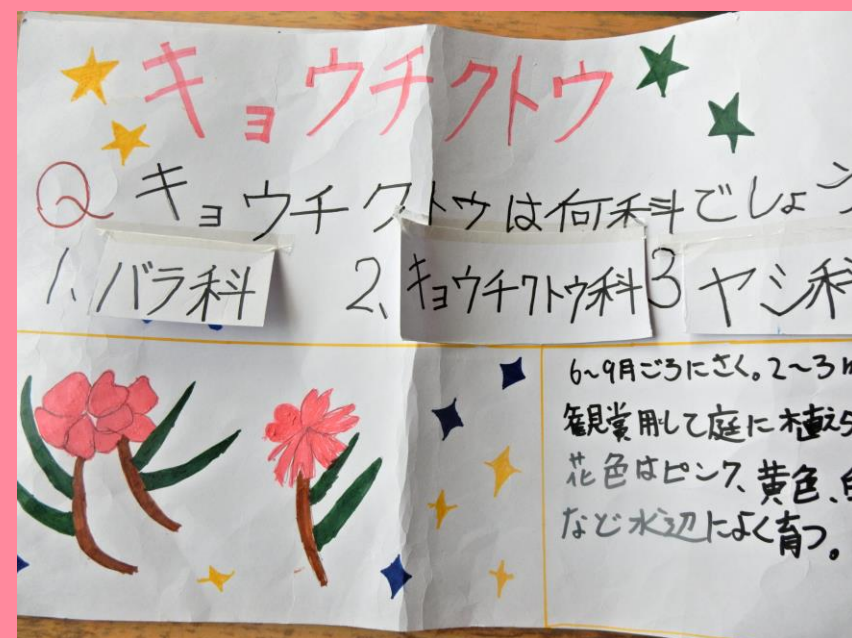 キョウチクトウ
Q キョウチクトウは何科でしょう
1、バラ科 2、キョウチクトウ科 3 ヤシ科
6~9月ごろにさく。2~3
観賞用して庭に植えら
花色はピンク、黄色、白
など水辺によく育つ。